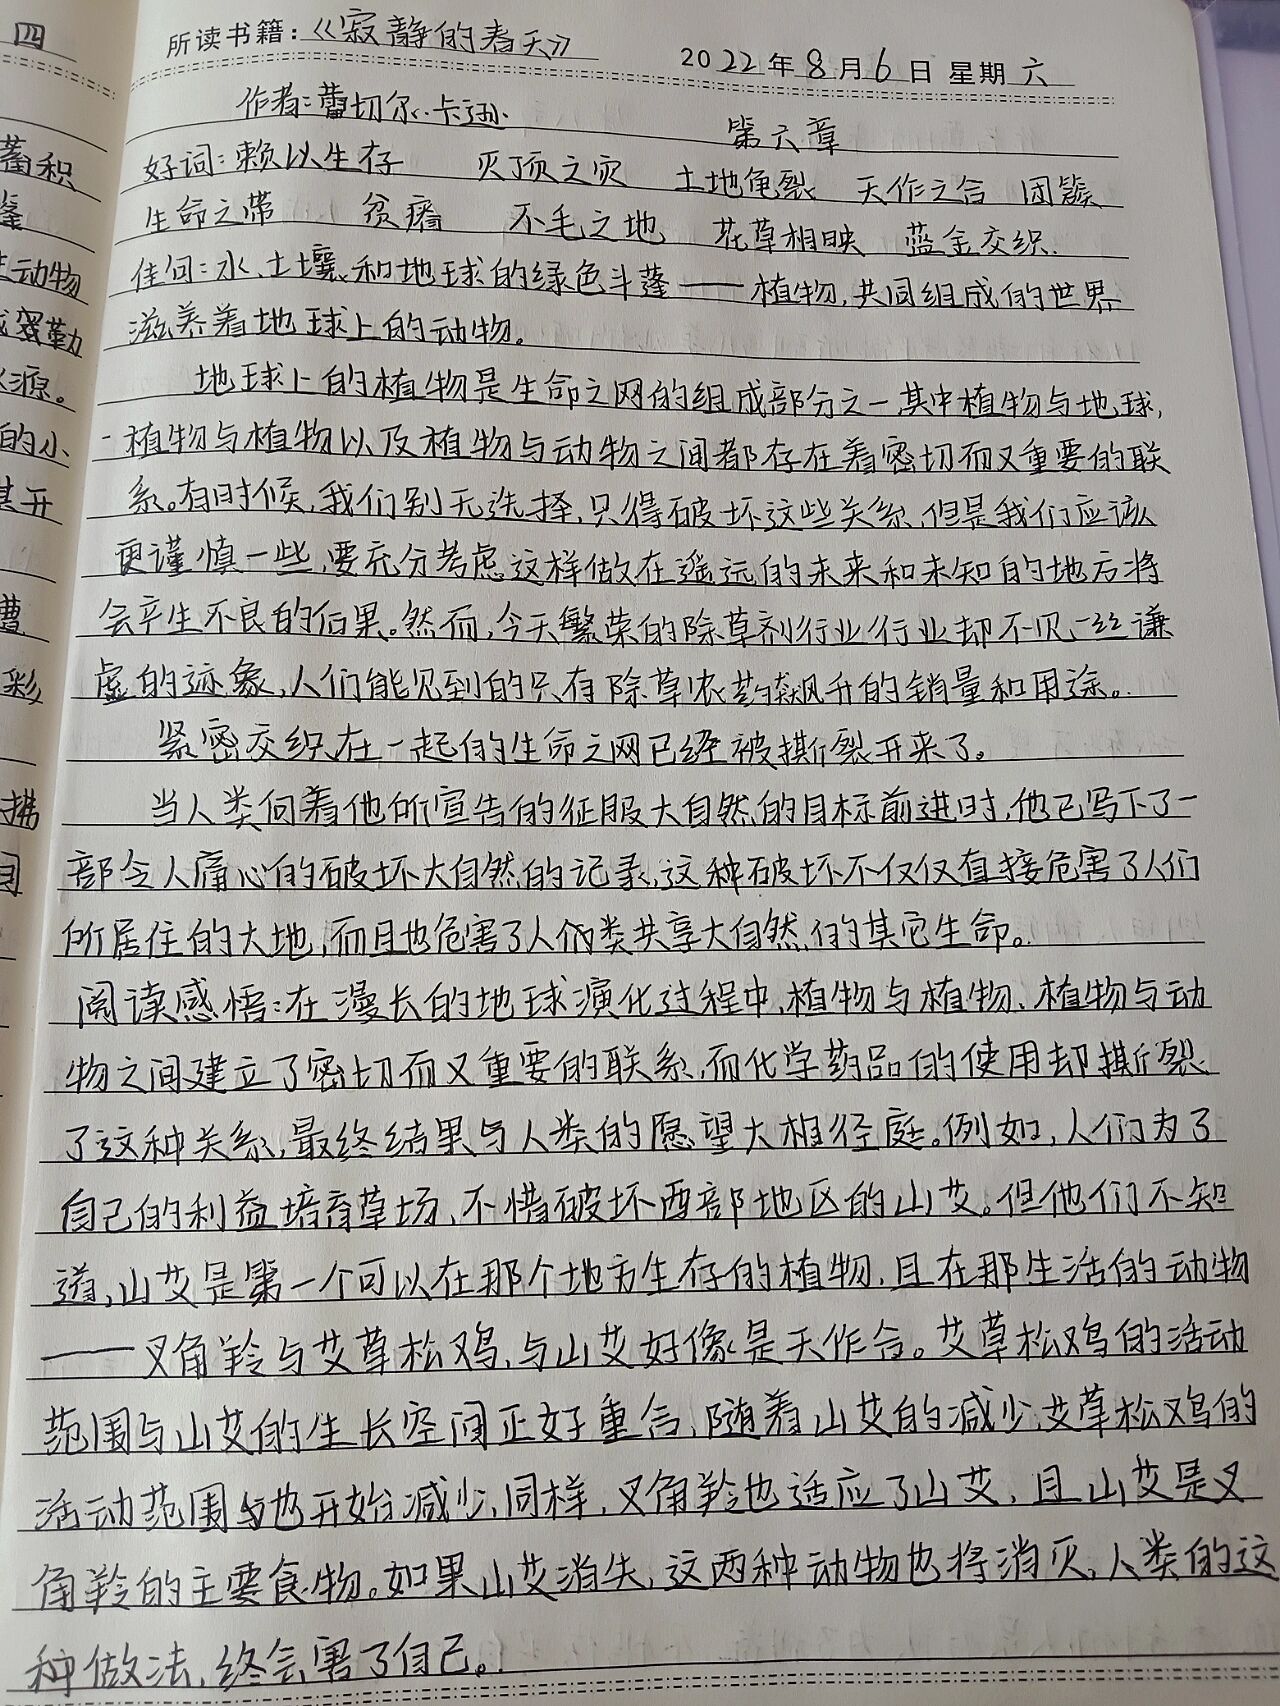 四
所读书籍：《寂静的春天》
2022年8月6日 星期六
作者：蕾切尔·卡逊
第六章
蓄积
好词：赖以生存 灭顶之灾 土地龟裂 天作之合 团簇
生命之带 贫瘠 不毛之地 花草相映 蓝金交织.
生动物
佳句：水、土壤、和地球的绿色斗蓬——植物，共同组成的世界
滋养着地球上的动物。
源。
地球上的植物是生命之网的组成部分之一，其中植物与地球，
的小
植物与植物以及植物与动物之间都存在着密切而又重要的联
甚开
系。有时候，我们别无选择，只得破坏这些关系，但是我们应该
更谨慎一些，要充分考虑这样做在遥远的未来和未知的地方将
会产生不良的后果。然而，今天繁荣的除草剂行业行业却不见一丝谦
彩
虚的迹象，人们能见到的只有除草农药飙升的销量和用途。
紧密交织在一起的生命之网已经被撕裂开来了。
当人类向着他所宣告的征服大自然的目标前进时，他已写下了一
部令人痛心的破坏大自然的记录，这种破坏不仅仅直接危害了人们
所居住的大地，而且也危害了人们类共享大自然的其它生命。
阅读感悟：在漫长的地球演化过程中，植物与植物、植物与动
物之间建立了密切而又重要的联系，而化学药品的使用却撕裂
了这种关系，最终结果与人类的愿望大相径庭。例如，人们为了
自己的利益培育草场，不惜破坏西部地区的山艾。但他们不知
道，山艾是第一个可以在那个地方生存的植物，且在那生活的动物
——叉角羚与艾草松鸡，与山艾好像是天作合。艾草松鸡的活动
范围与山艾的生长空间正好重合，随着山艾的减少，艾草松鸡的
活动范围也开始减少，同样，叉角羚也适应了山艾，且山艾是叉
角羚的主要食物。如果山艾消失，这两种动物也将消灭，人类的这
种做法，终会害了自己。